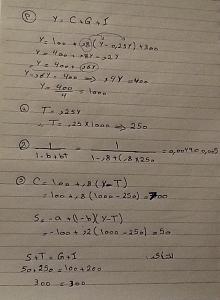 ① Y = C + G + I
Y = 100 + ,8 (Y - 0,25Y) + 300
Y = 400 + ,8Y - ,2Y
Y = 400 + ,6Y
Y - ,6Y = 400 ⇒ ,4Y = 400
Y = 400/4 = 1000
T = ,25Y
∴ T = ,25 × 1000 ⇒ 250
② 1/(1-b+bt) = 1/(1-,8+(,8×,25)
③ C = 100 + ,8 (Y - T)
= 100 + ,8 (1000 - 250) = 700
S = -a + (1-b)(Y-T)
= -100 + ,2 (1000 - 250) = 50
S + T = G + I
50 + 250 = 100 + 200
300 = 300